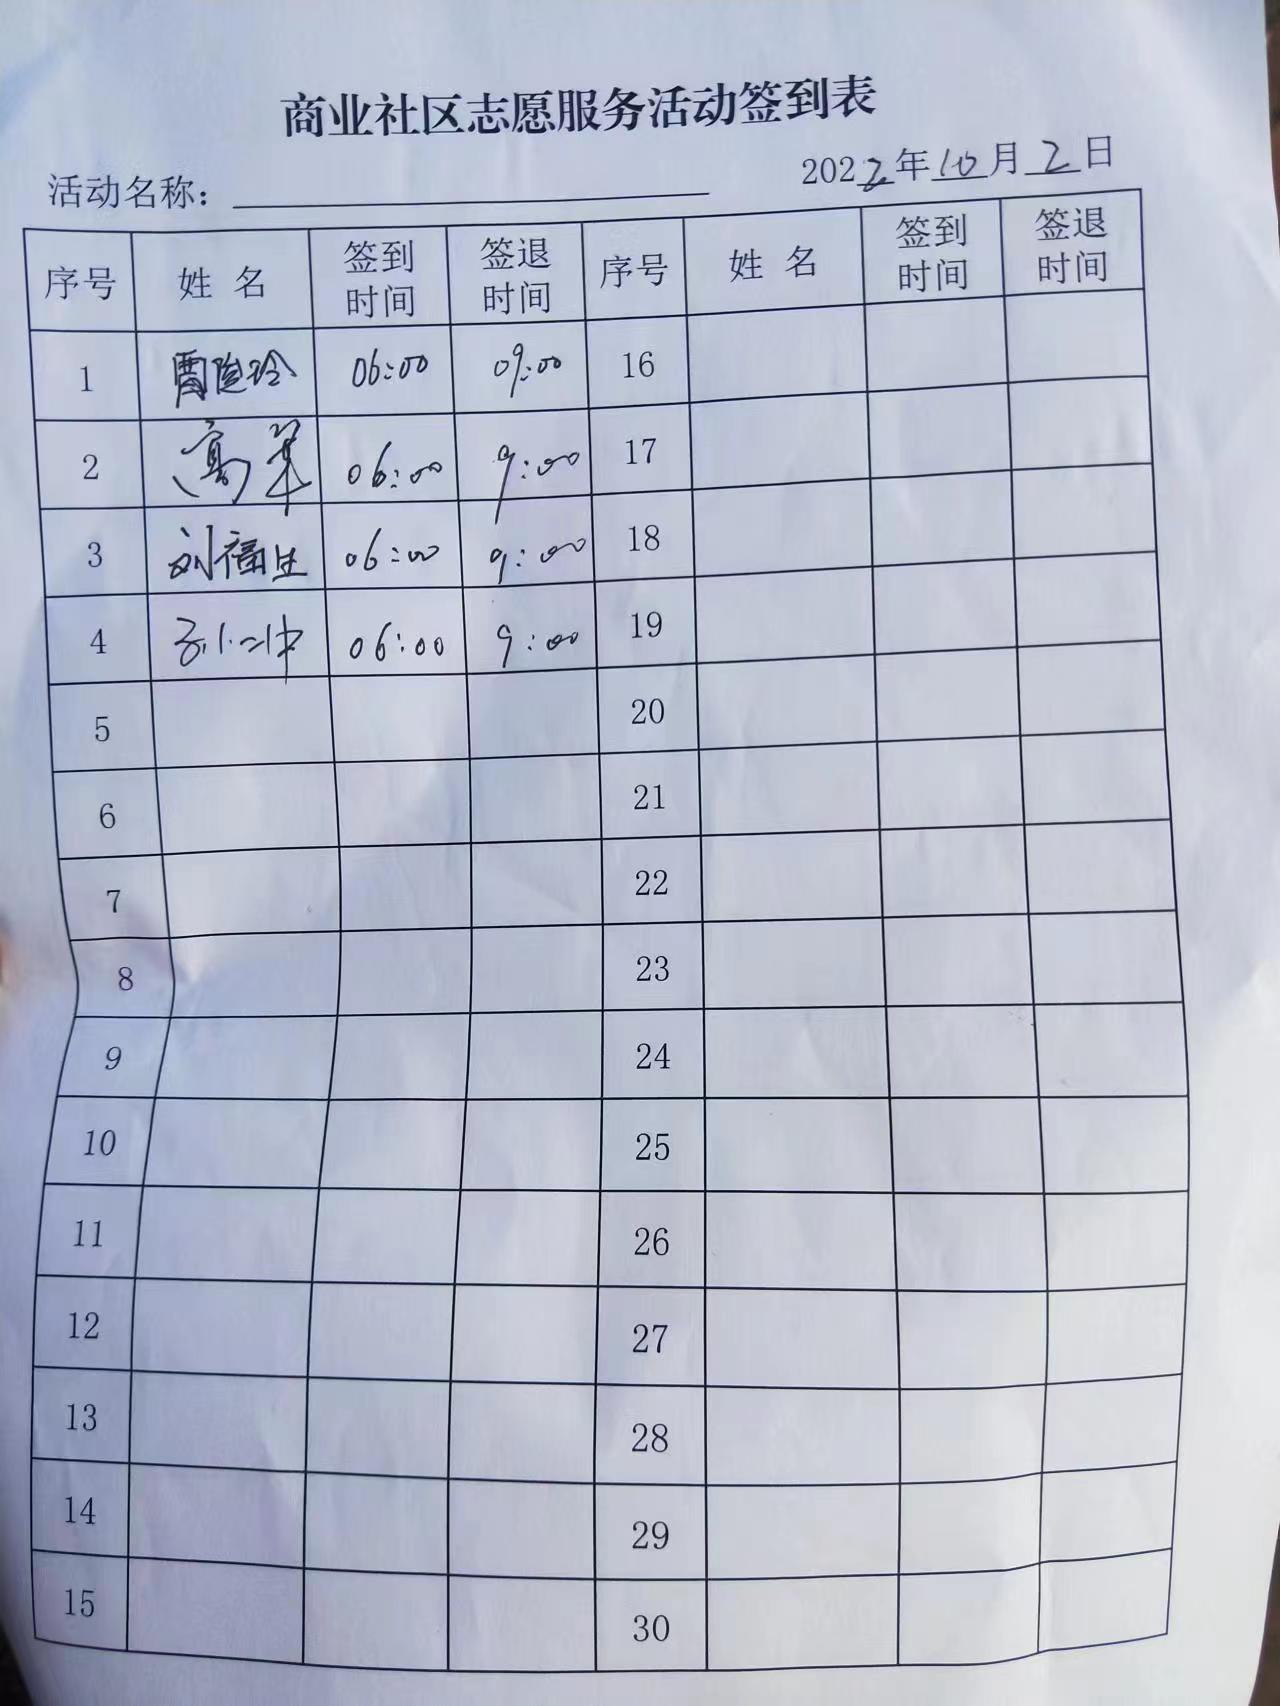 商业社区志愿服务活动签到表
活动名称： 2022年10月2日
序号 姓名 签到时间 签退时间 序号 姓名 签到时间 签退时间
1 06:00 09:00 16
2 06:00 9:00 17
3 刘福生 06:00 9:00 18
4 06:00 9:00 19
5 20
6 21
7 22
8 23
9 24
10 25
11 26
12 27
13 28
14 29
15 30